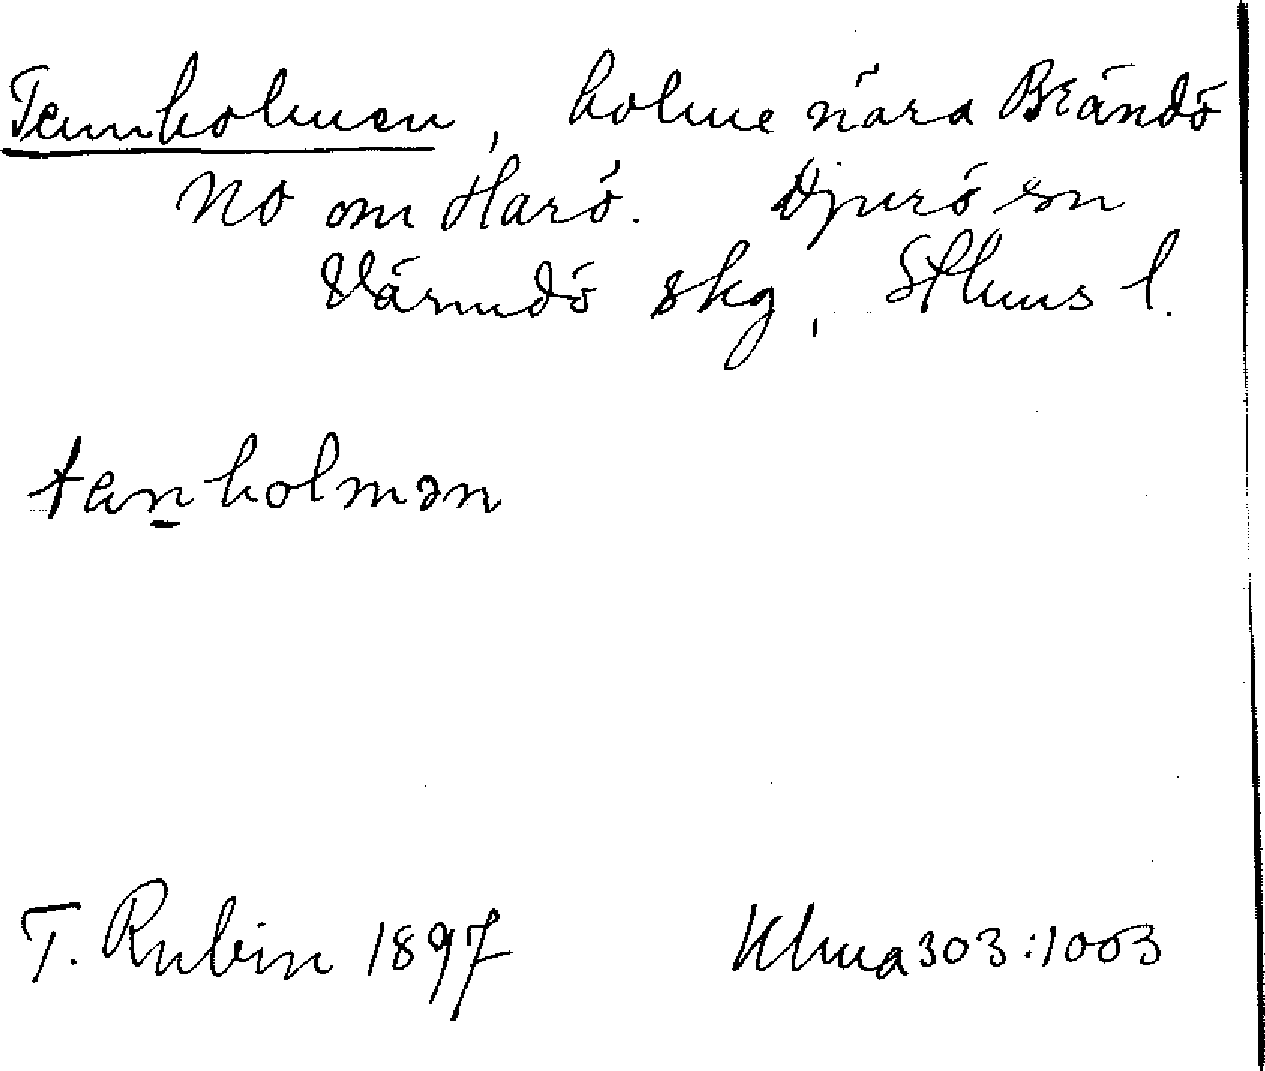 Tennholmen, holme nära Brändö
NO om Harö. Djurö sn
Värmdö skg, Sthms l.
ten̲holmən
T. Rubin 1897 Klma 303:1003